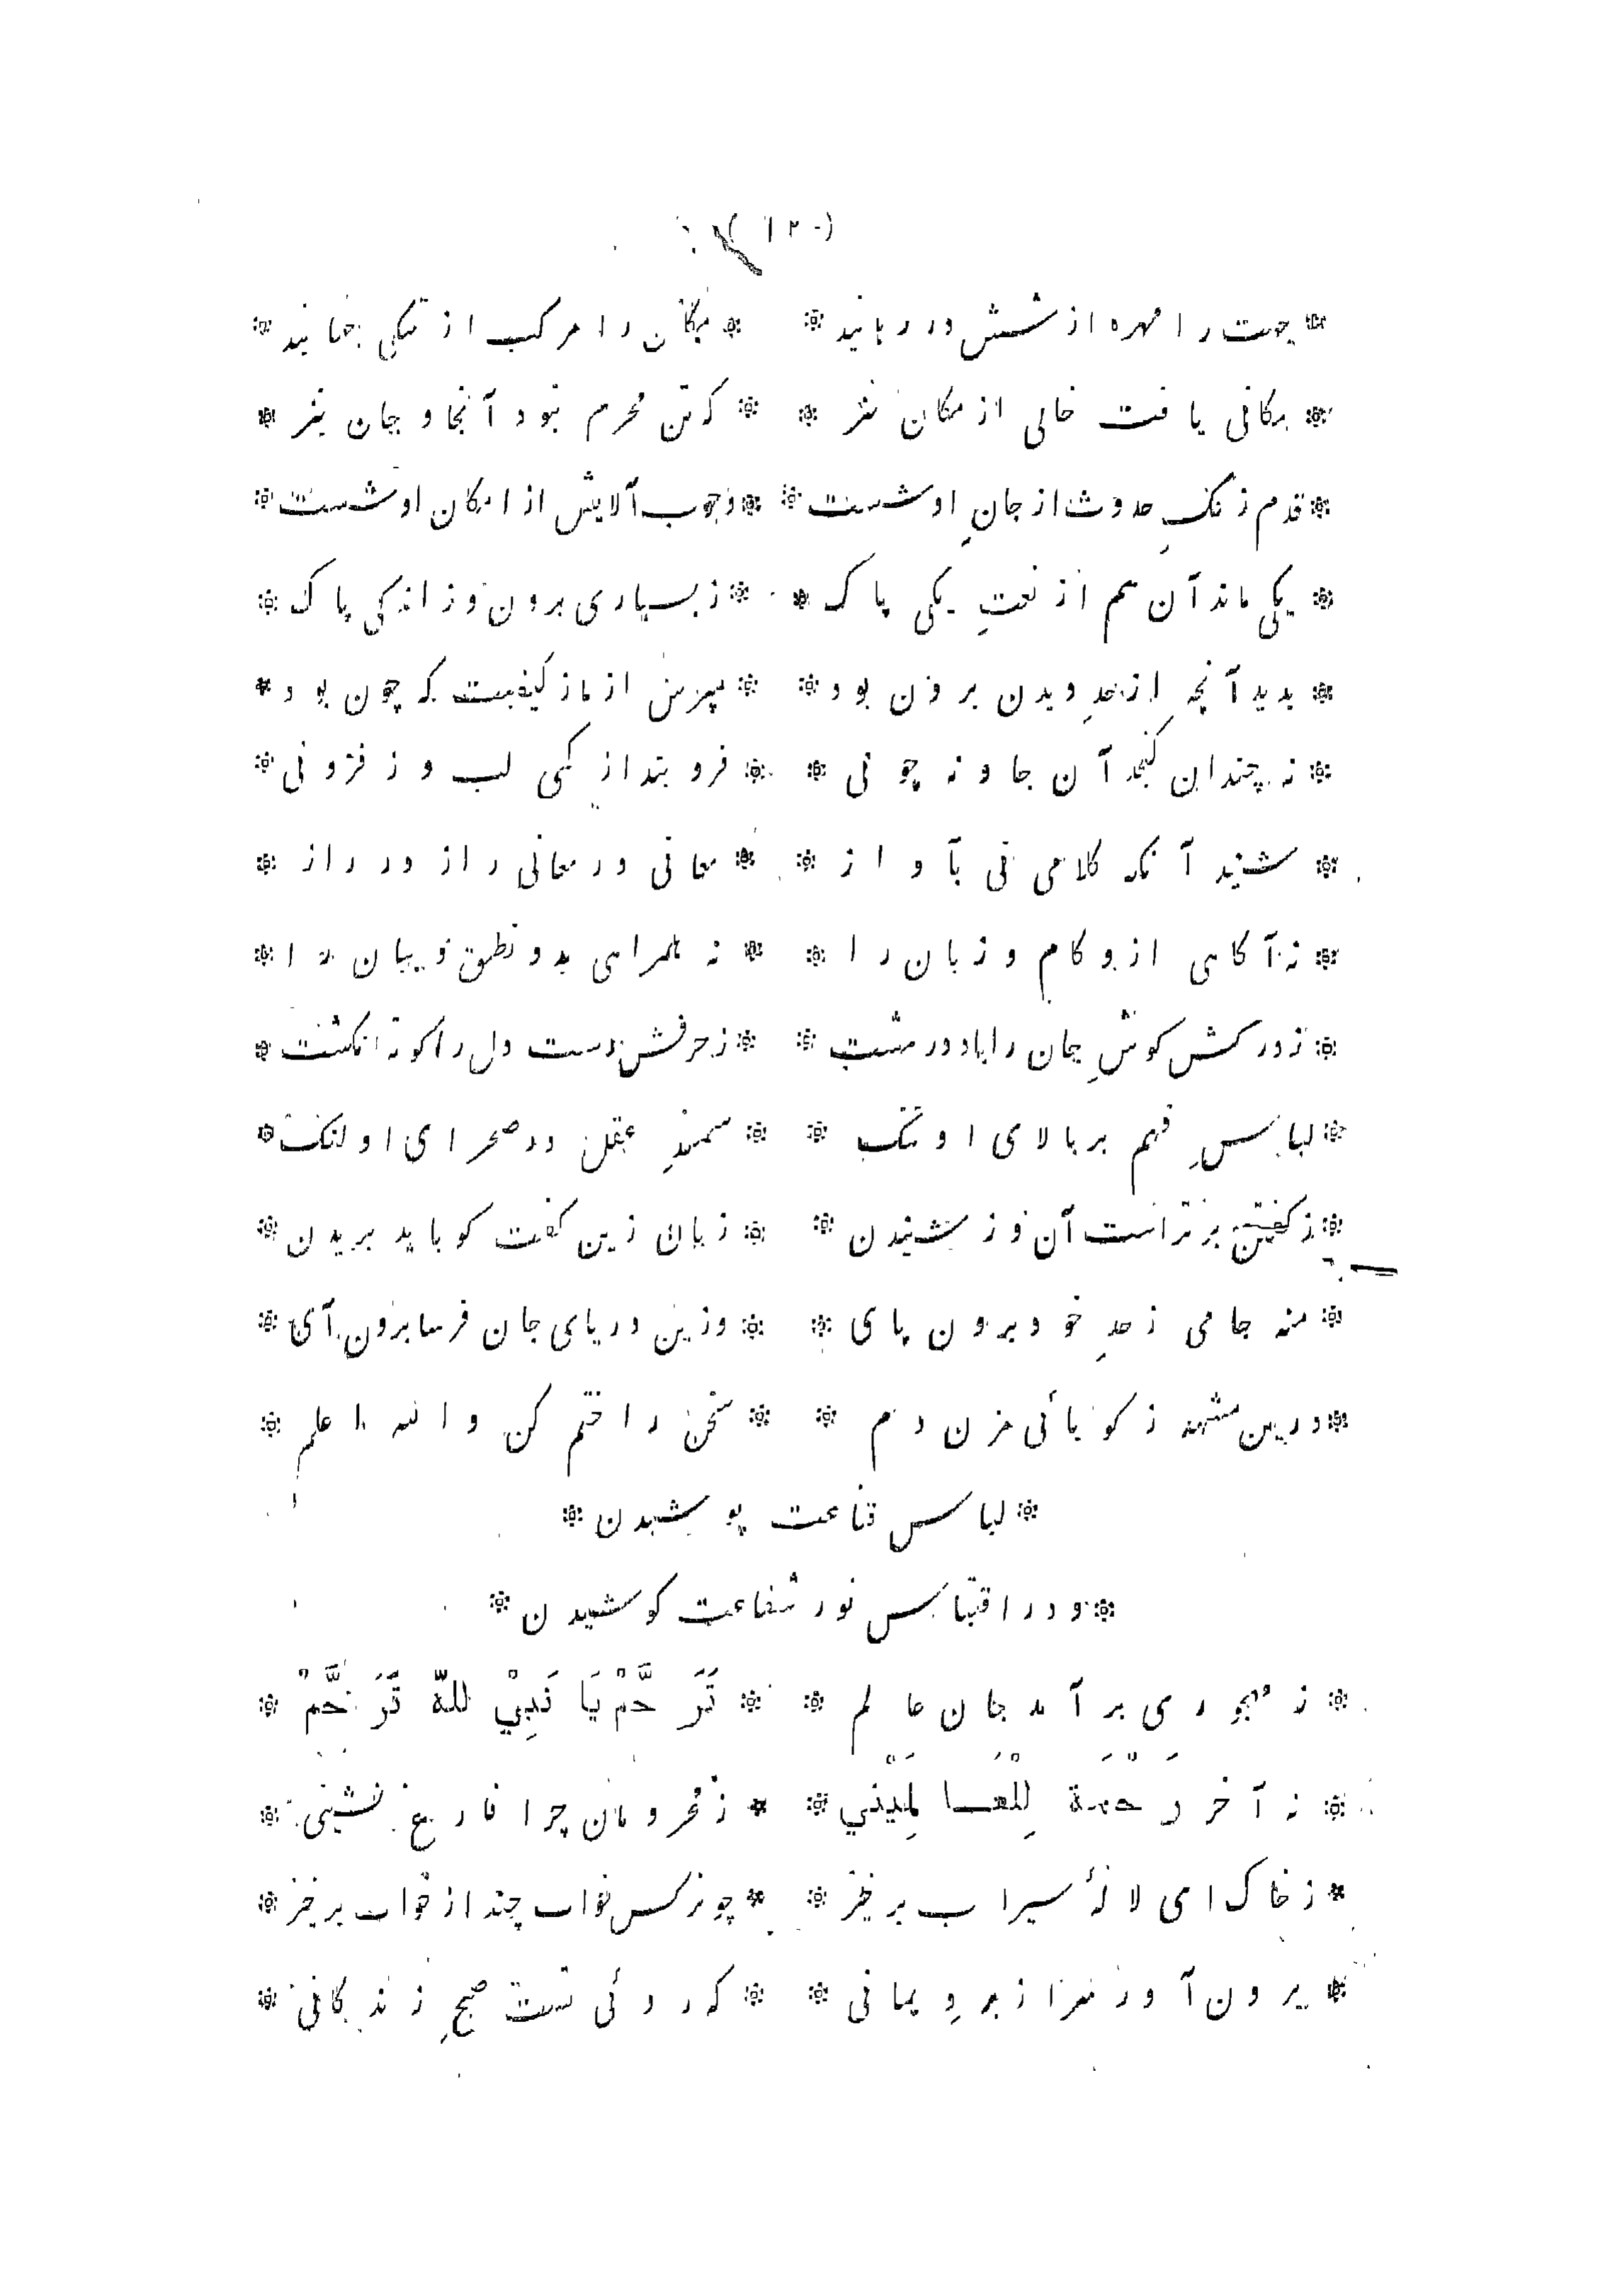 (۱۲۰)
* جهت را مهره از ششدر رهانید * * مکان را مرکب از تنکی جهانید *
* مکانی یافت خالی از مکان نیز * * که تن محرم نبود آنجا و جان نیز *
* قدم زنکِ حدوث از جانِ او شست * * وجوب آلایش از امکان او شست *
* یکی ماند آن هم از نعتِ یکی پاک * * ز بسیاری برون وز اندکی پاک *
* بدید آنچه از حدِ دیدن برون بود * * مپرس از ما ز کیفیت که چون بود *
* نه چندان کنجد آن جا و نه چونی * * فرو بند از کمی لب وز فزونی *
* شنید آنکه کلامی نی بآواز * * معانی در معانی راز در راز *
* نه آکاهی ازو کام و زبان را * * نه همراهی بدو نطق و بیان را *
* ز درکش کوشِ جان را باد در مشت * * ز حرفش دست دل را کوته انکشت *
* لباسِ فهم بر بالای او تنک * * سمندِ عقل در صحرای او لنک *
* ز کفتن برتر است آن وز شنیدن * * زبان زین کفت کو باید بریدن *
* منه جامی ز حدِ خود برون پای * * وزین دریای جان فرسا برون آی *
* درین مشهد ز کویائی مزن دم * * سخن را ختم کن و الله اعلم *
* لباس قناعت پوشیدن *
* و در اقتباس نور شفاعت کوشیدن *
* ز مهجوری بر آمد جان عالم * * تَرَحَّمْ يَا نَبِيْ للهّ تَرَحَّمْ *
* نه آخر رحمة لِلْعَالَمِيْنِي * * ز محرومان چرا فارغ نشینی *
* ز خاک ای لالهٔ سیراب برخیز * * چو نرکس خواب چند از خواب برخیز *
* برون آور سر از بردِ یمانی * * که روئی تست صبحِ زندکانی *